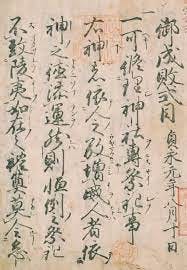 御成敗式目 貞永元年八月十日
一 可修理神社專祭祀事
右神者依人之敬增威人者依
神之
運然則恒例之祭祀
不致陵夷如在之礼奠莫